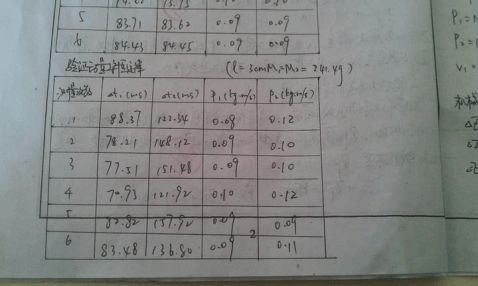 5 83.71 83.62 0.09 0.09
6 84.43 84.45 0.09 0.09
验证动量守恒定律 (l=3cm M₁=M₂=241.4g)
Δt₁(ms) Δt₂(ms) P₁(kg·m/s) P₂(kg·m/s)
1 88.37 122.34 0.08 0.12
2 78.21 148.12 0.09 0.10
3 77.51 151.48 0.09 0.10
4 70.93 121.92 0.10 0.12
5 82.82 157.92 0.09 0.09
6 83.48 136.80 0.09 0.11
2